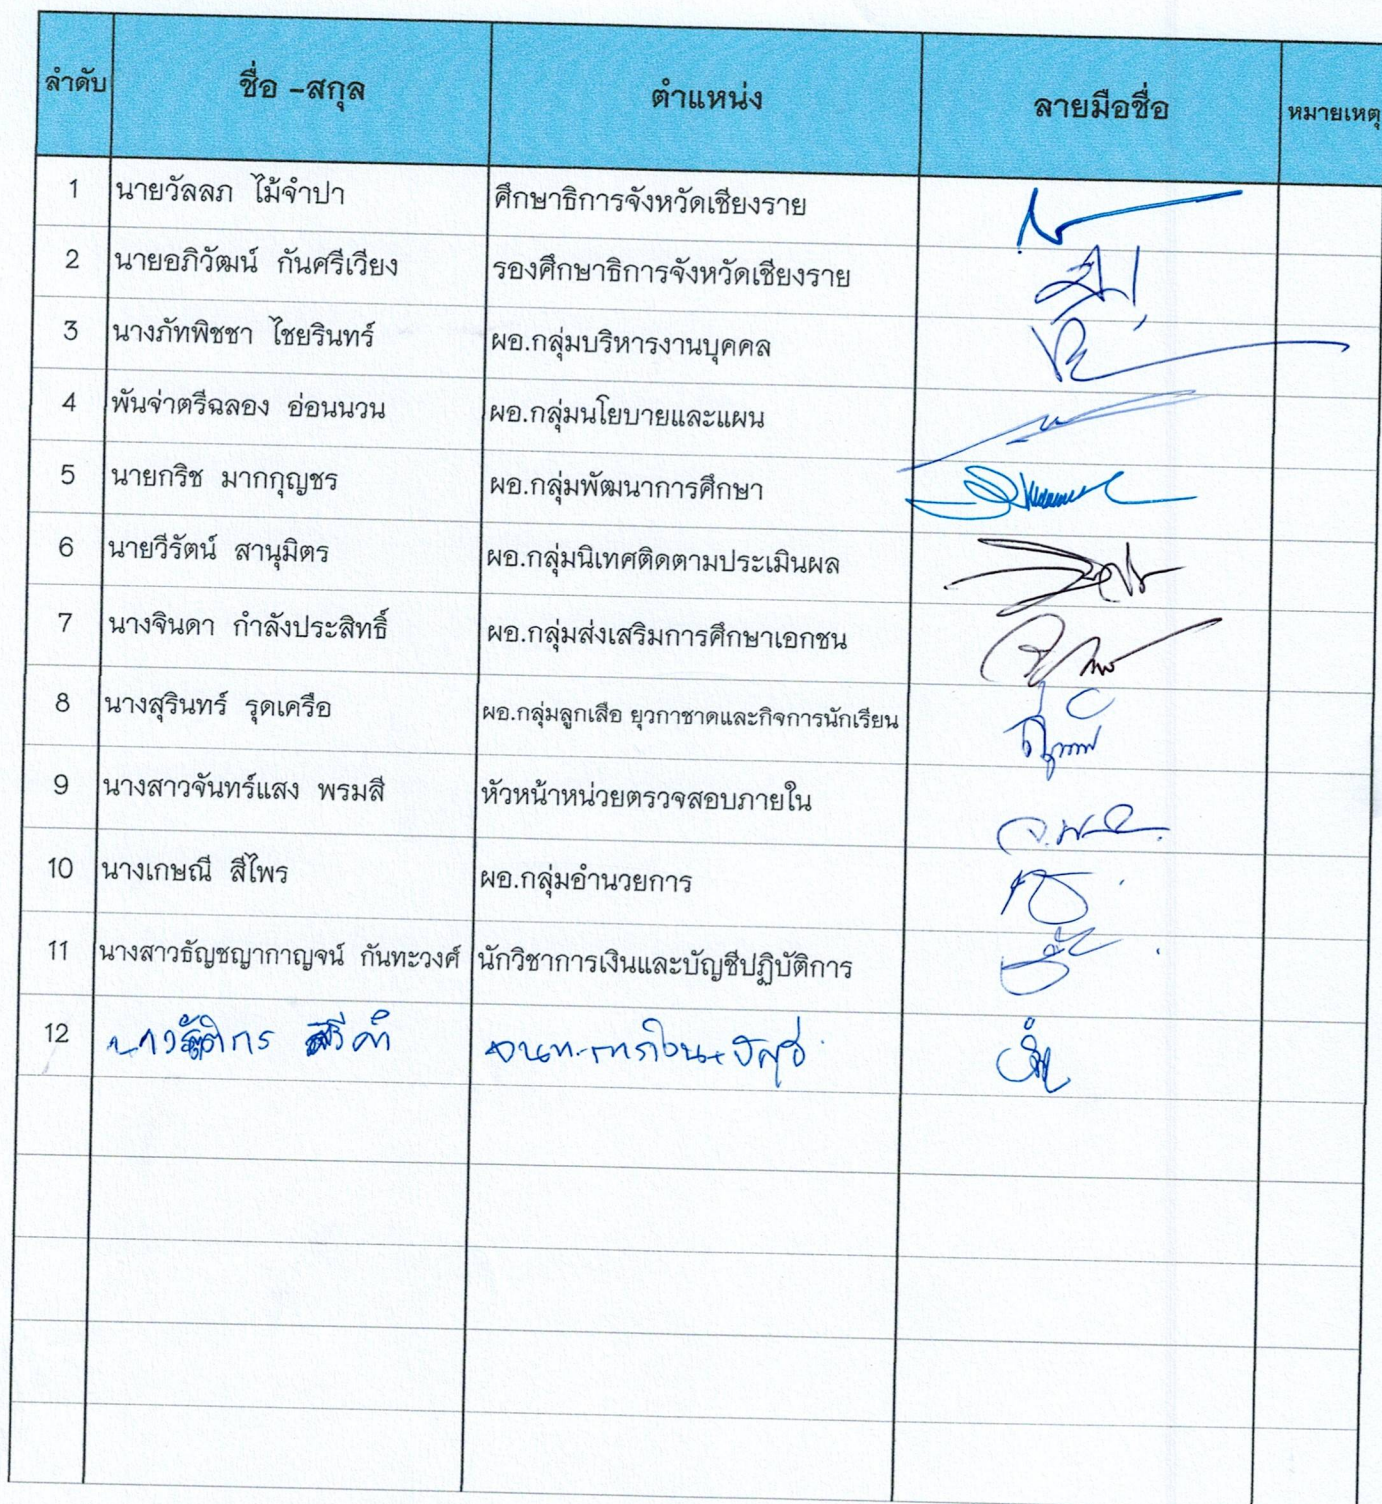 ลำดับ ชื่อ -สกุล ตำแหน่ง ลายมือชื่อ หมายเหตุ
1 นายวัลลภ ไม้จำปา ศึกษาธิการจังหวัดเชียงราย
2 นายอภิวัฒน์ กันศรีเวียง รองศึกษาธิการจังหวัดเชียงราย
3 นางภัทพิชชา ไชยรินทร์ ผอ.กลุ่มบริหารงานบุคคล
4 พันจ่าตรีฉลอง อ่อนนวน ผอ.กลุ่มนโยบายและแผน
5 นายกริช มากกุญชร ผอ.กลุ่มพัฒนาการศึกษา
6 นายวีรัตน์ สานุมิตร ผอ.กลุ่มนิเทศติดตามประเมินผล
7 นางจินดา กำลังประสิทธิ์ ผอ.กลุ่มส่งเสริมการศึกษาเอกชน
8 นางสุรินทร์ รุดเครือ ผอ.กลุ่มลูกเสือ ยุวกาชาดและกิจการนักเรียน
9 นางสาวจันทร์แสง พรมสี หัวหน้าหน่วยตรวจสอบภายใน
10 นางเกษณี สีไพร ผอ.กลุ่มอำนวยการ
11 นางสาวธัญชญากาญจน์ กันทะวงศ์ นักวิชาการเงินและบัญชีปฏิบัติการ
12